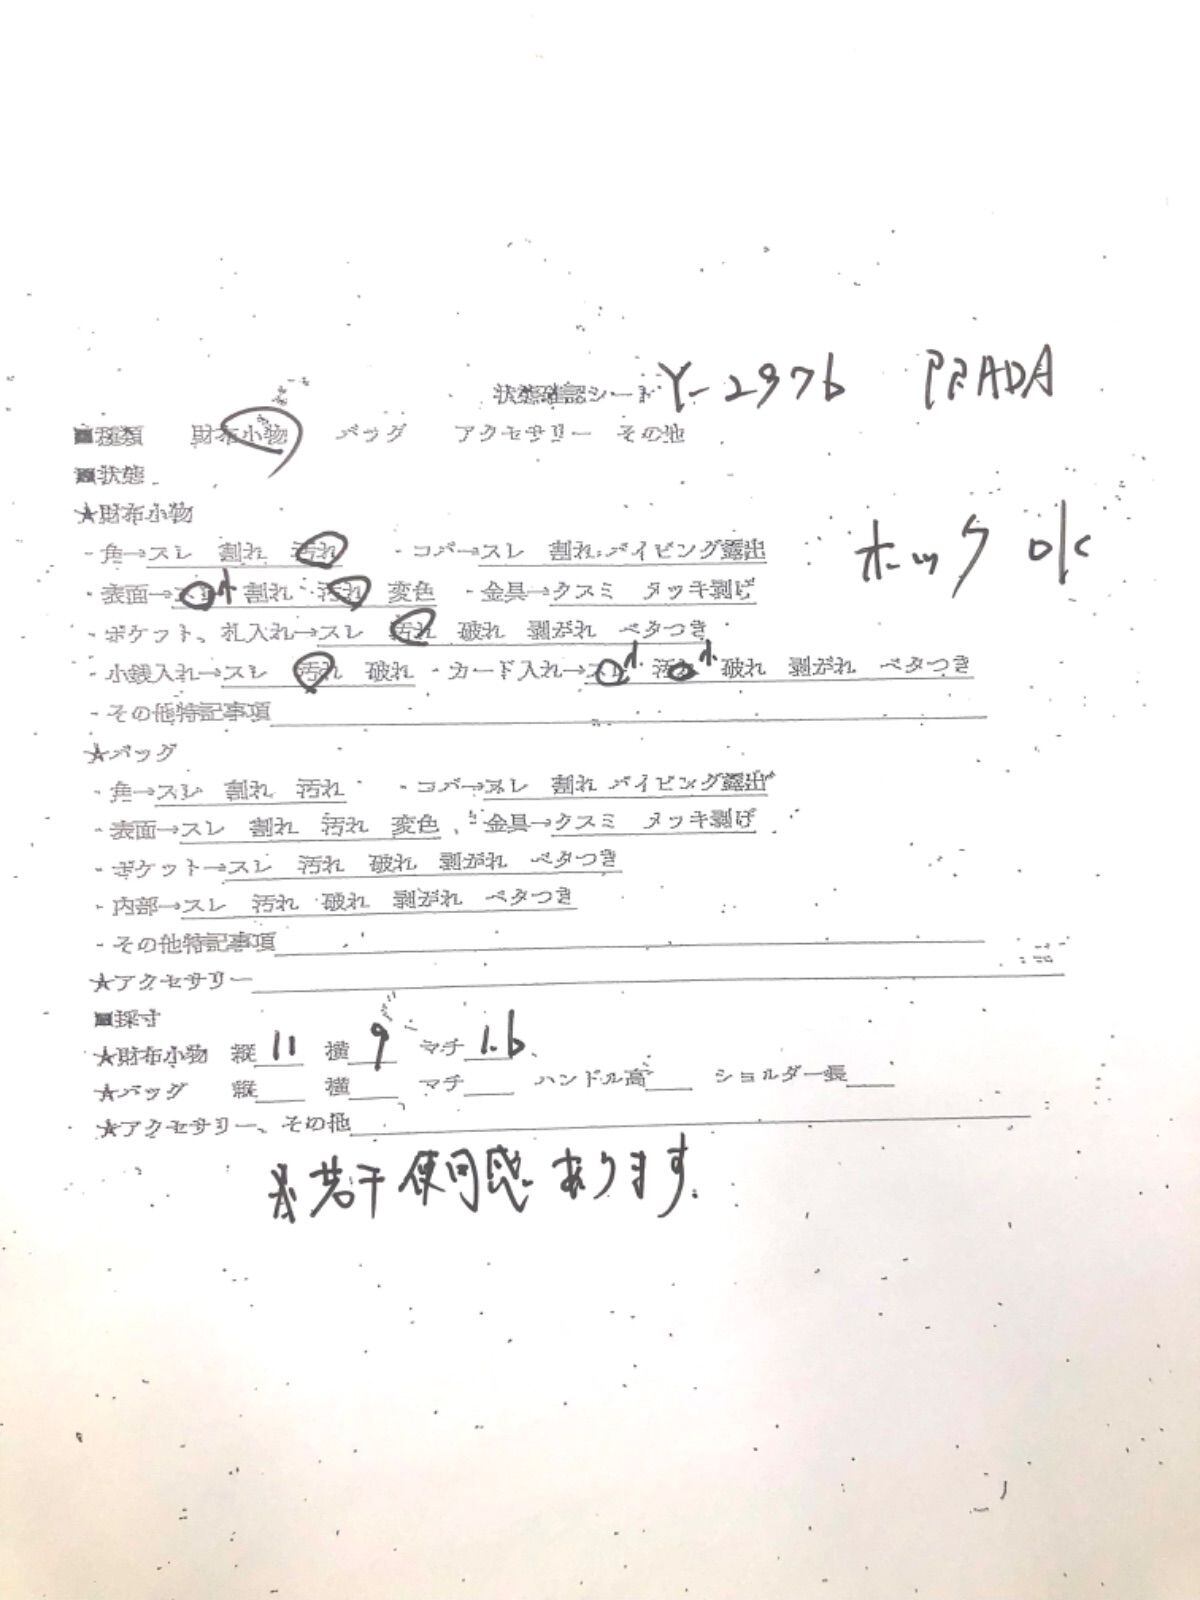 状態確認シート Y-2976 PRADA
■種類 財布小物 バッグ アクセサリー その他
■状態
★財布小物
・角→スレ 割れ 汚れ ・コバ→スレ 割れ パイピング露出
ホック OK
・表面→スレ小 割れ 汚れ 変色 ・金具→クスミ メッキ剥げ
・ポケット、札入れ→スレ 汚れ 破れ 剥がれ ベタつき
・小銭入れ→スレ 汚れ 破れ ・カード入れ→スレ小 汚れ小 破れ 剥がれ ベタつき
・その他特記事項
★バッグ
・角→スレ 割れ 汚れ ・コバ→スレ 割れ パイピング露出
・表面→スレ 割れ 汚れ 変色 ・金具→クスミ メッキ剥げ
・ポケット→スレ 汚れ 破れ 剥がれ ベタつき
・内部→スレ 汚れ 破れ 剥がれ ベタつき
・その他特記事項
★アクセサリー
■採寸
★財布小物 縦 11 横 9 マチ 1.6
★バッグ 縦 横 マチ ハンドル高 ショルダー長
★アクセサリー、その他
若干使用感あります.